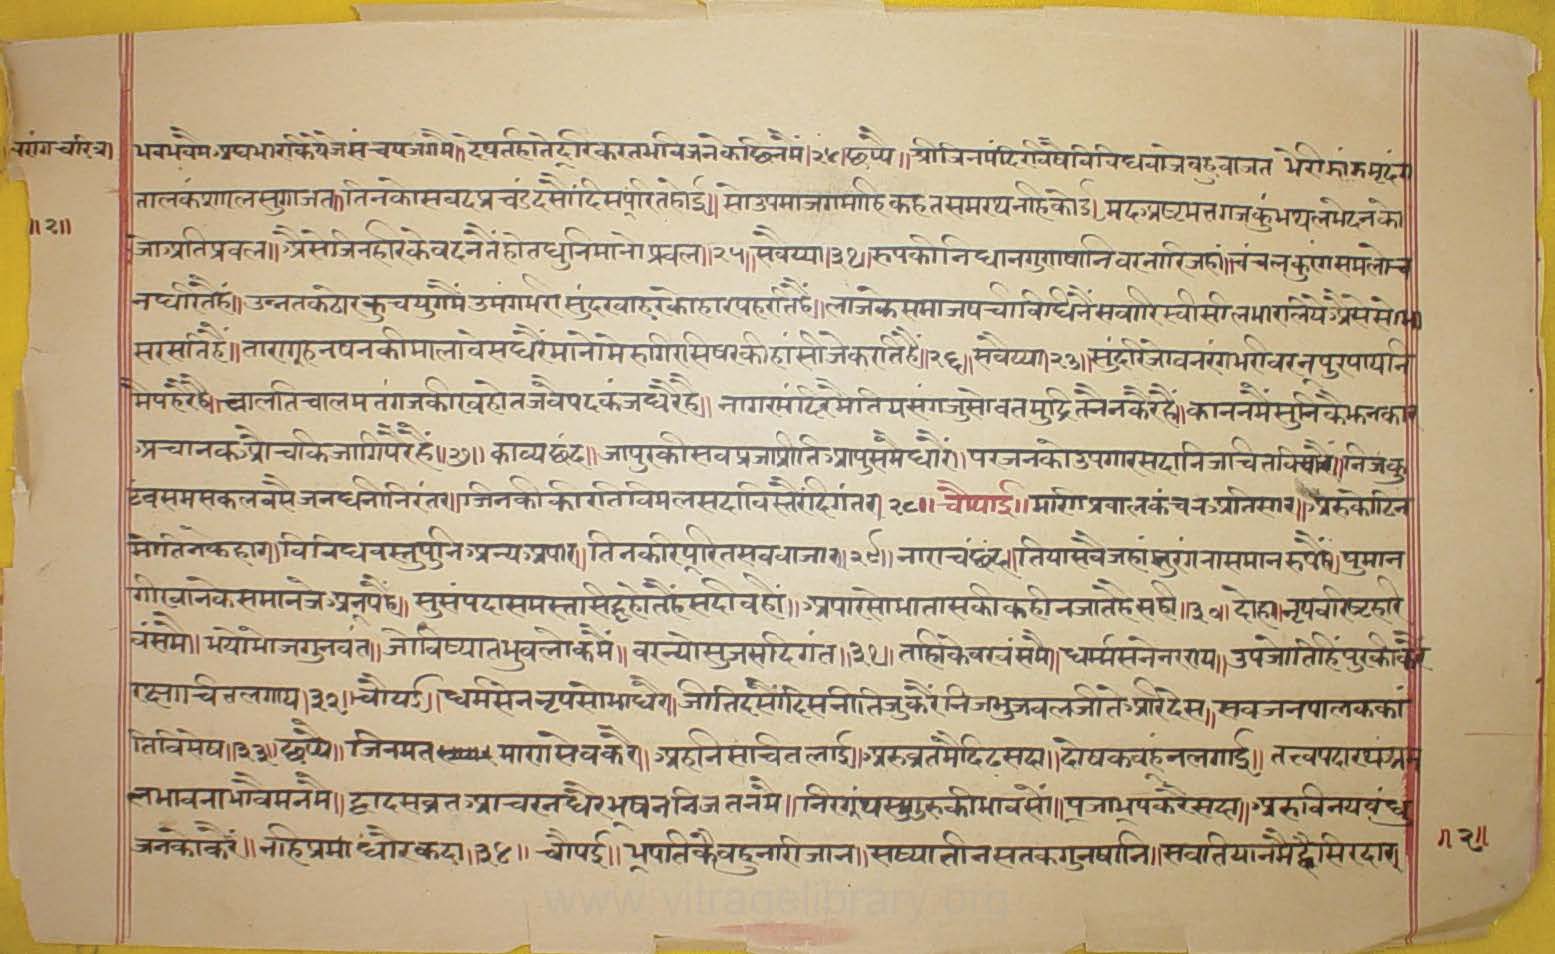 वरांग चरित्र।
भवभवैमअघभारकियेजेसंचपजगमै॥ देषतहातेदूरिकरतभविजनकेछिनमैं।२४।छप्पै॥ श्रीजिनमंदिरविषैविविधबाजेबहुवाजत भेरीझांझमृदंग
तालकंशालसुगाजत॥ तिनकोसबदप्रचंडदसौंदिसपूरितहोई॥ सोउपमाजगमांहिकहतसमरथनहिकोई। मदअष्टमत्तगजकुंभथलभेदनको
॥२॥
जोअतिप्रबल॥ औसेजिनहरिकेवदनतैंहोतधुनिमानोप्रवल॥२५॥ सवैय्या।३१।रूपकीनिधानगुणषानिवरनारिजहां॥ चंचलकुरंगसमलोच
नधरतिहैं॥ उन्नतकठोरकुचयुगमैंउमंगभरीसुंदरचारुकोहारपहरतिहैं॥ लाजकेसमाजपचीविधिनैंसवारिरचीसीलभारलियेऔसेसोभा
सरसतिहैं॥ तारागृहनषनकीमालावेसधरैंमानोमेरुगिरसिषरकीहांसीजेकरतिहैं॥२६॥ सवैय्या।२३॥ सुंदरिजोवनरंगभरीवरनूपुरपायनि
मैपहरैहै॥ चालतिचालमतंगजकीरवहोतजवैपदकंजधरैहै॥ नागरमंदिरमैतियसंगजुसोवतमुद्रितनैनकरैहैं॥ काननमैंसुनिकैझनकार
अचानकऔचकिजागिपरैहैं॥२७॥ काव्यछंद॥ जापुरकीसवप्रजाप्रीतिआपुसमैधारैं॥ परजनकोउपगारसदानिजचितविचारैं॥ निजकु
टंवसमसकलबसैजनधनीनिरंतर॥ जिनकीकीरतिविमलसदाविस्तरैंदिगंतर॥ २८॥ चौपाई॥ मणिप्रवालकंचनअतिसार॥ अरुकोटिन
मोतिनकेहार॥ विविधवस्तुपुनिअन्यअपार॥ तिनकरिपूरितसबबाजार॥२९॥ नाराचछंद॥ तियासवैजहांसुरंगनासमानरूपहैं॥ पुमान
गीरवानकेसमानजेअनूपहैं॥ सुसंपदासमस्तसिद्धहोतहैंसदीवहीं॥ अपारसोभातासकीकहीनजातहैसही॥३०॥ दोहा॥ नृपवरिष्टहरि
वंसमै॥ भयोभोजगुनवंत॥ जोविष्यातभुवलोकमैं॥ वरन्योसुजसदिगंत॥३१॥ ताहीकेवरवंसमै॥ धर्म्मसेननरराय॥ उपजोतिहिंपुरकीकरै
रक्षाचितलगाय।३२।चौपई॥ धर्मसेननृपसोभाधरै॥ जीतिदसौंदिसनीतिजुकरैंनिजभुजवलजीतेअरिदेस॥ सवजनपालककां
तिविसेष॥३३॥ छप्पै॥ जिनमतमारगसेवकरै॥ अहनिसचितलाई॥ अरुव्रतमैदिढसदा॥ दोषकवहूंनलगाई॥ तत्त्वपदारथंअम
लभावनाभावैमनमै॥ द्वादसव्रतआचरनधरैभूषननिजतनमै॥ निरग्रंथसुगुरुकीभावसौं॥ पूजाभूपकरैसदा॥ अरुविनयबंधु
जनकोकरैं॥ नहिप्रमादधारैकदा॥३४॥ चौपई॥ भूपतिकैबहुनारीजान॥ सष्यातीनसतकगुनषानि॥ सवतियानमैद्वैसिरदार
॥२॥
www.vitragelibrary.org